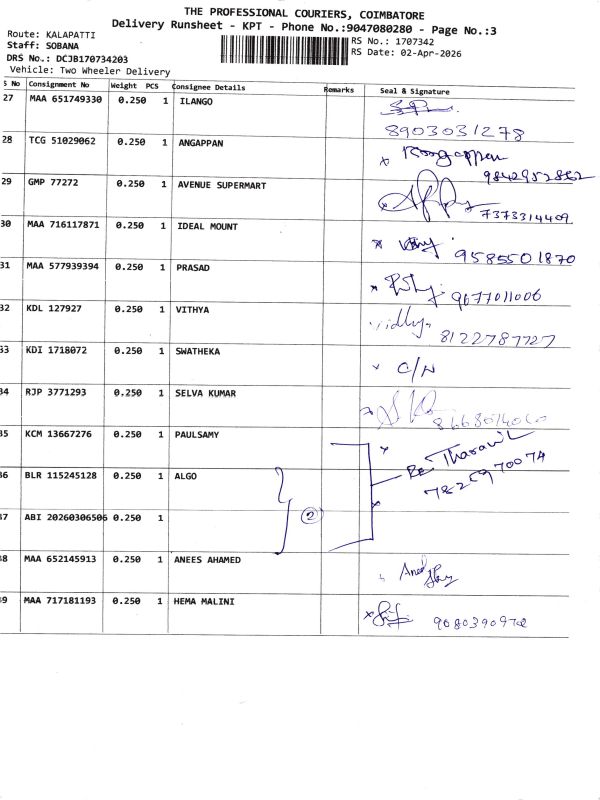 THE PROFESSIONAL COURIERS, COIMBATORE
Delivery Runsheet - KPT - Phone No.:9047080280 - Page No.:3
Route: KALAPATTI
Staff: SOBANA
RS No.: 1707342
DRS No.: DCJB170734203
RS Date: 02-Apr-2026
Vehicle: Two Wheeler Delivery
S No Consignment No Weight PCS Consignee Details Remarks Seal & Signature
27 MAA 651749330 0.250 1 ILANGO
8903031278
28 TCG 51029062 0.250 1 ANGAPPAN
9842952862
29 GMP 77272 0.250 1 AVENUE SUPERMART
7373314409
30 MAA 716117871 0.250 1 IDEAL MOUNT
9585501870
31 MAA 577939394 0.250 1 PRASAD
9677011006
32 KDL 127927 0.250 1 VITHYA
8122787727
33 KDI 1718072 0.250 1 SWATHEKA
C/N
34 RJP 3771293 0.250 1 SELVA KUMAR
35 KCM 13667276 0.250 1 PAULSAMY
36 BLR 115245128 0.250 1 ALGO
37 ABI 20260306506 0.250 1
2
38 MAA 652145913 0.250 1 ANEES AHAMED
39 MAA 717181193 0.250 1 HEMA MALINI